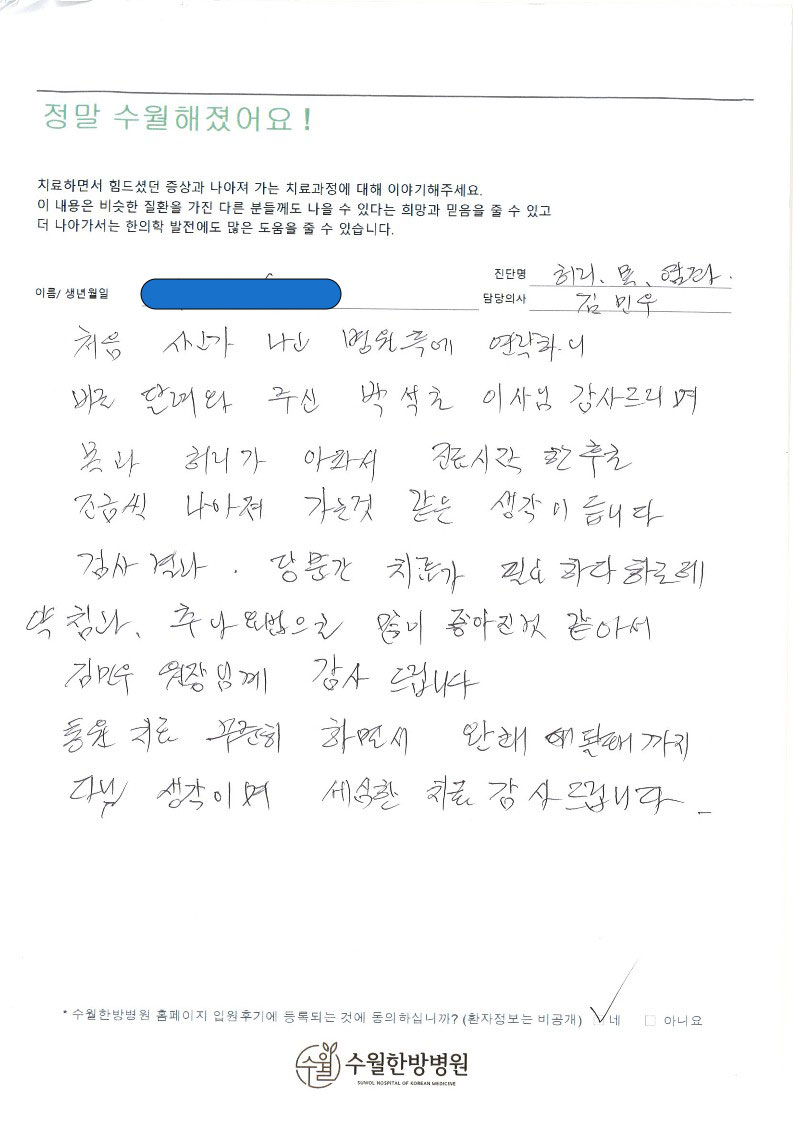 정말 수월해졌어요!
치료하면서 힘드셨던 증상과 나아져 가는 치료과정에 대해 이야기해주세요.
이 내용은 비슷한 질환을 가진 다른 분들께도 나을 수 있다는 희망과 믿음을 줄 수 있고
더 나아가서는 한의학 발전에도 많은 도움을 줄 수 있습니다.
진단명 허리, 목,
이름/ 생년월일
담당의사 김민우
처음 사고가 나고 병원측에 연락하니
바로 달려와 주신 박석초 이사님 감사드리며
목과 허리가 아파서 진료시작 한 후로
조금씩 나아져 가는것 같은 생각이 듭니다
검사 결과 . 당분간 치료가 필요하다 하는데
약침과, 추나요법으로 많이 좋아진것 같아서
김민우 원장님께 감사 드립니다
통원 치료 꾸준히 하면서 완쾌 될때 까지
다닐 생각이며 세심한 치료 감사드립니다
* 수월한방병원 홈페이지 입원후기에 등록되는 것에 동의하십니까? (환자정보는 비공개) 네 아니요
수월 수월한방병원
SUWOL HOSPITAL OF KOREAN MEDICINE